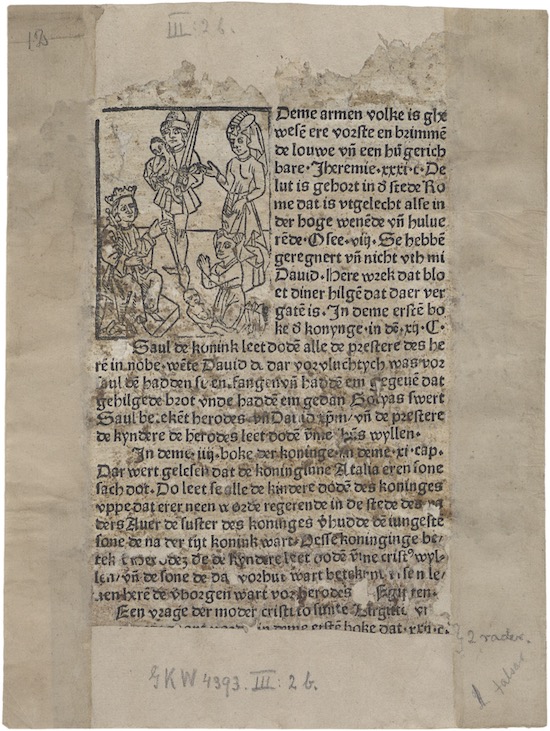 III: 2 b.
Deme armen volke is ghe
wesē ere vorste en brimmē
de louwe vñ een hūgerich
bare · Iheremie · xxxi · c · De
lut is gehort in d̄ stede Ro
me dat is vtgelecht alse in
der hoge wenēde vñ hulue
rēde · Osee · viij · Se hebbē
geregnert vñ nicht vth mi
Dauid · Here wrek dat blo
et diner hilgē dat daer ver
gatē is · In deme erstē bo
ke d̄ konynge in dē · xxij · C ·
Saul de konink leet dodē alle de prestere des he
rē in nobe · wēte Dauid dar vorvluchtych was vor
hadden en fangen vñ haddē em gegeuē dat
gehilgede brot vnde haddē em gedan Golyas swert
Saul herodes vñ Dauid xpm / vñ de prestere
de kyndere de herodes leet dodē vm̄e wyllen ·
In deme · iiij · boke der koninge · in deme · xi · cap ·
Dar wert gelesen dat de koninginne Atalia eren sone
sach dot · Do leet se alle de kindere dodē des koninges
vppe dat erer neen worde regerende in de stede des va
ders Auer de suster des koninges v̄hudde dē iungeste
sone de na der tyt konink wart · Desse koninginge be/
tek de de kyndere leet dodē vm̄e crist⁹ wyl/
len / vñ de sone de vorhut wart
herē de v̄borgen wart vor herodes
Een vrage der moder cristi to sunte
in deme erstē boke dat · xxij · c ·
2 rader.
GKW 4393. III: 2 b.